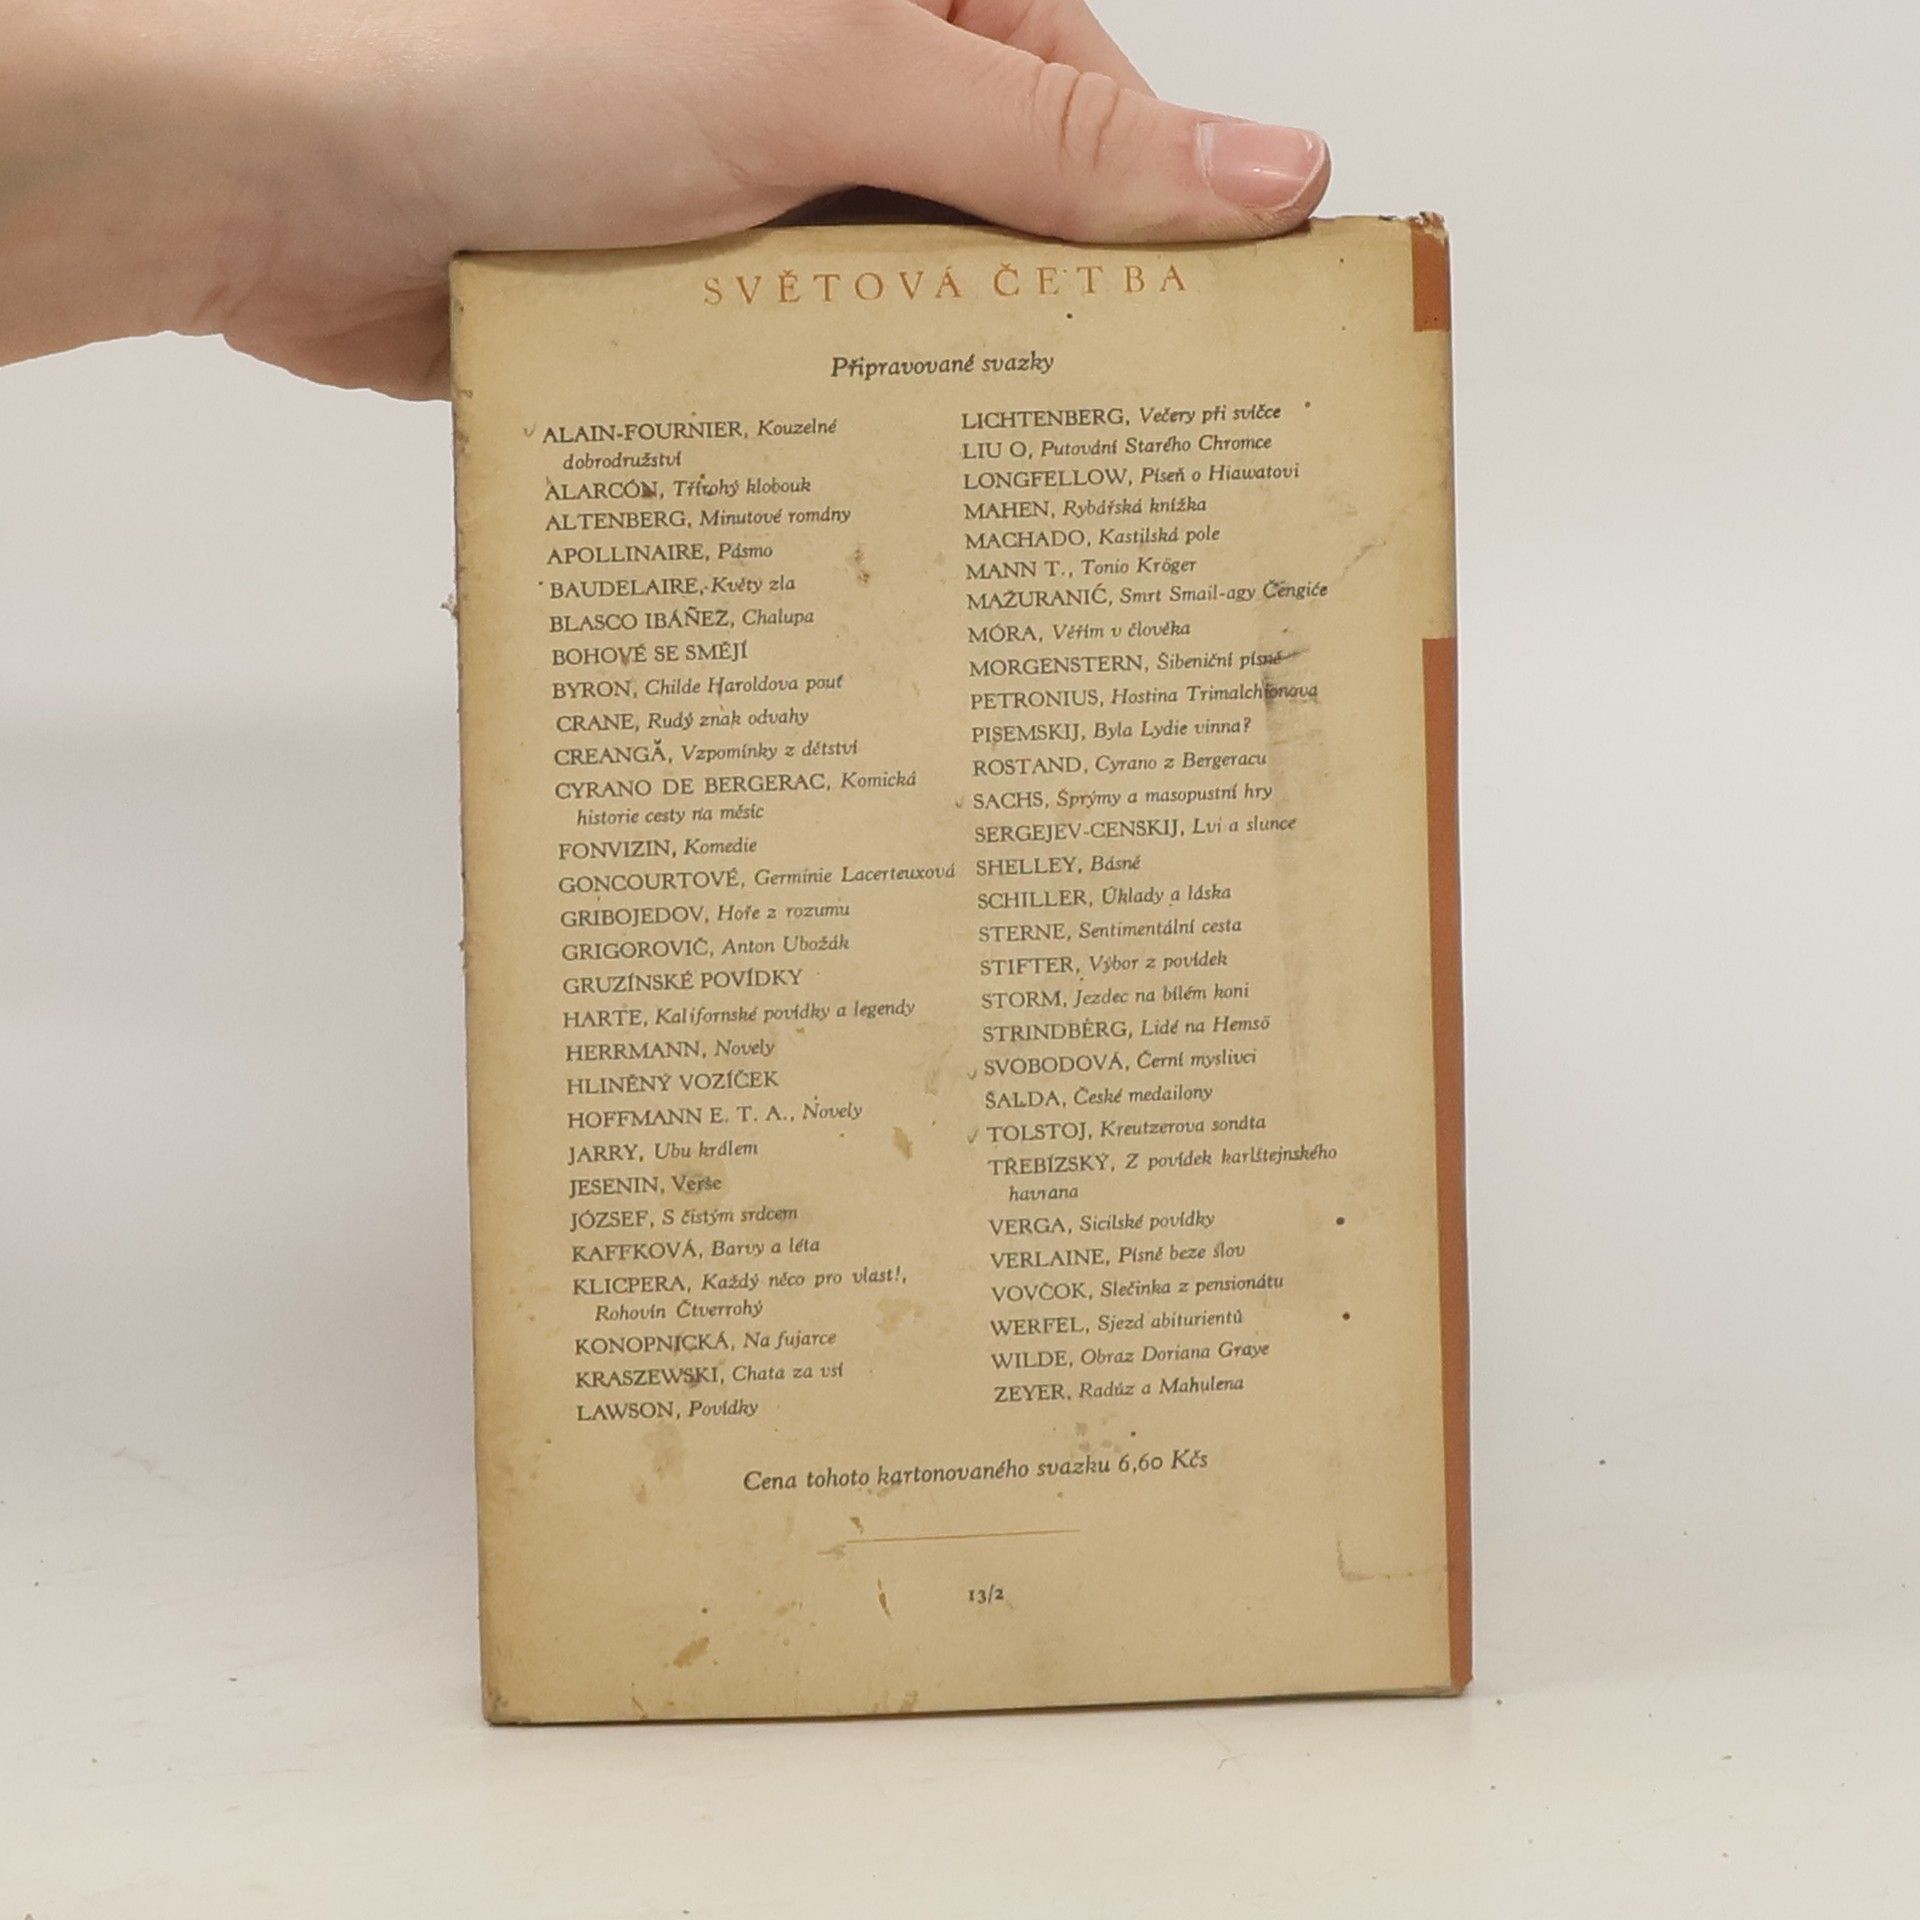 SVĚTOVÁ ČETBA
Připravované svazky
ALAIN-FOURNIER, Kouzelné
dobrodružství
ALARCÓN, Třírohý klobouk
ALTENBERG, Minutové romány
APOLLINAIRE, Pásmo
BAUDELAIRE, Květy zla
BLASCO IBÁÑEZ, Chalupa
BOHOVÉ SE SMĚJÍ
BYRON, Childe Haroldova pouť
CRANE, Rudý znak odvahy
CREANGĂ, Vzpomínky z dětství
CYRANO DE BERGERAC, Komická
historie cesty na měsíc
FONVIZIN, Komedie
GONCOURTOVÉ, Germinie Lacerteuxová
GRIBOJEDOV, Hoře z rozumu
GRIGOROVIČ, Anton Ubožák
GRUZÍNSKÉ POVÍDKY
HARTE, Kalifornské povídky a legendy
HERRMANN, Novely
HLINĚNÝ VOZÍČEK
HOFFMANN E. T. A., Novely
JARRY, Ubu králem
JESENIN, Verše
JÓZSEF, S čistým srdcem
KAFFKOVÁ, Barvy a léta
KLICPERA, Každý něco pro vlast!,
Rohovín Čtverrohý
KONOPNICKÁ, Na fujarce
KRASZEWSKI, Chata za vsí
LAWSON, Povídky
LICHTENBERG, Večery při svíčce
LIU O, Putování Starého Chromce
LONGFELLOW, Píseň o Hiawatovi
MAHEN, Rybářská knížka
MACHADO, Kastilská pole
MANN T., Tonio Kröger
MAŽURANIĆ, Smrt Smail-agy Čengiće
MÓRA, Věřím v člověka
MORGENSTERN, Šibeniční písně
PETRONIUS, Hostina Trimalchionova
PISEMSKIJ, Byla Lydie vinna?
ROSTAND, Cyrano z Bergeracu
SACHS, Šprýmy a masopustní hry
SERGEJEV-CENSKIJ, Lvi a slunce
SHELLEY, Básně
SCHILLER, Úklady a láska
STERNE, Sentimentální cesta
STIFTER, Výbor z povídek
STORM, Jezdec na bílém koni
STRINDBERG, Lidé na Hemsö
SVOBODOVÁ, Černí myslivci
ŠALDA, České medailony
TOLSTOJ, Kreutzerova sonáta
TŘEBÍZSKÝ, Z povídek karlštejnského
havrana
VERGA, Sicilské povídky
VERLAINE, Písně beze slov
VOVČOK, Slečinka z pensionátu
WERFEL, Sjezd abiturientů
WILDE, Obraz Doriana Graye
ZEYER, Radúz a Mahulena
Cena tohoto kartonovaného svazku 6,60 Kčs
13/2